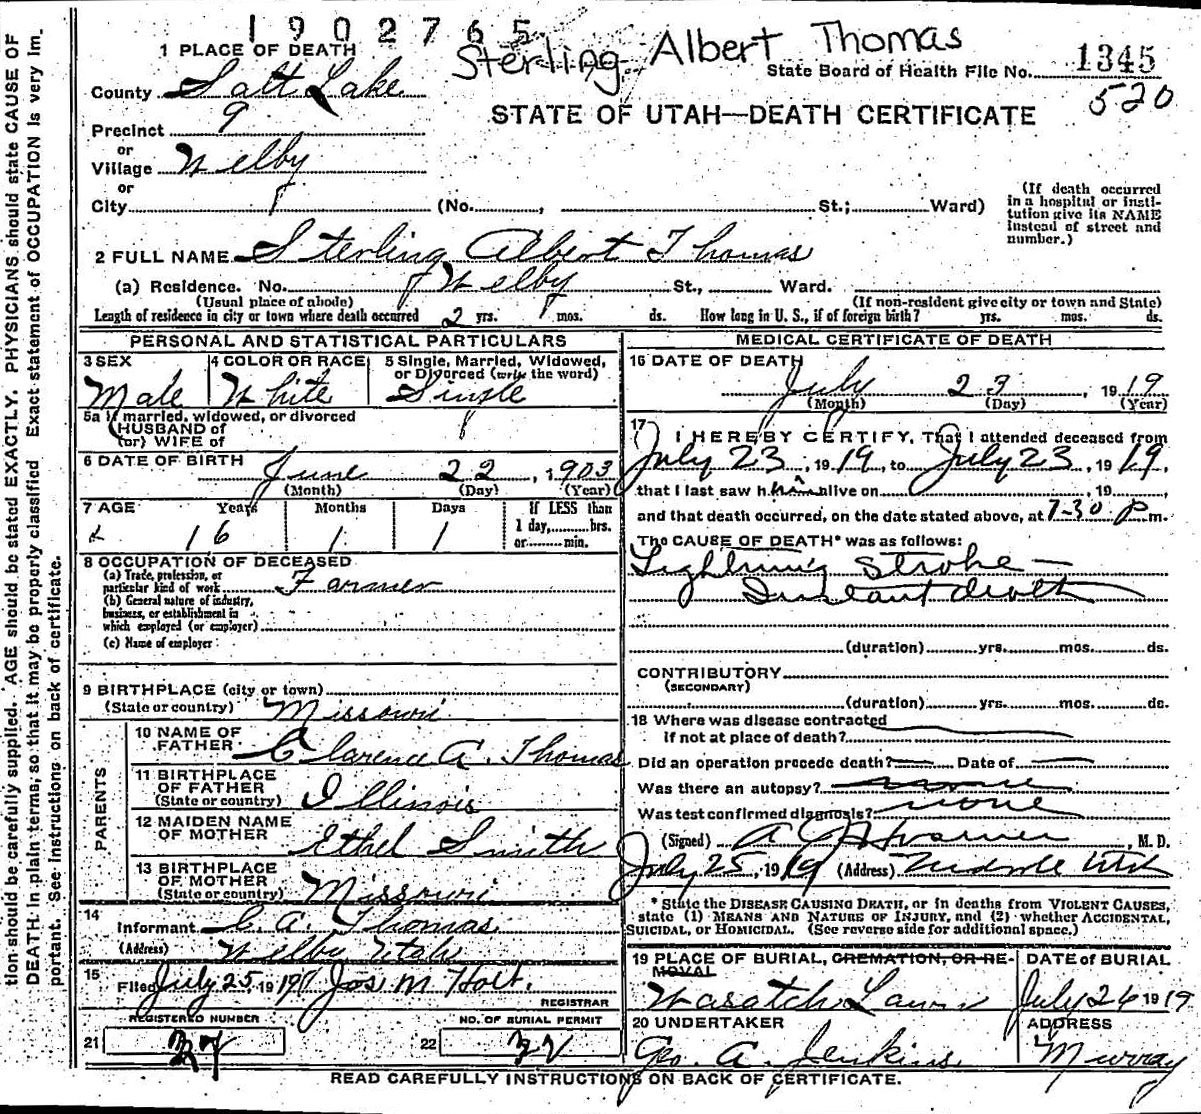 1902765
Sterling Albert Thomas
1 PLACE OF DEATH
State Board of Health File No. 1345
County Salt Lake
520
STATE OF UTAH—DEATH CERTIFICATE
Precinct 9
or
Village Welby
or
City (No. , St.; Ward)
(If death occurred in a hospital or institution give its NAME instead of street and number.)
2 FULL NAME Sterling Albert Thomas
(a) Residence. No. Welby St., Ward.
(Usual place of abode) (If non-resident give city or town and State)
Length of residence in city or town where death occurred 2 yrs. mos. ds. How long in U. S., if of foreign birth? yrs. mos. ds.
PERSONAL AND STATISTICAL PARTICULARS
3 SEX
Male
4 COLOR OR RACE
White
5 Single, Married, Widowed,
or Divorced (write the word)
Single
5a If married, widowed, or divorced
HUSBAND of
(or) WIFE of
6 DATE OF BIRTH June 22, 1903
(Month) (Day) (Year)
7 AGE Years Months Days If LESS than
16 1 1 1 day,......hrs.
or......min.
8 OCCUPATION OF DECEASED
(a) Trade, profession, or
particular kind of work Farmer
(b) General nature of industry,
business, or establishment in
which employed (or employer)
(c) Name of employer
9 BIRTHPLACE (city or town)
(State or country) Missouri
PARENTS
10 NAME OF
FATHER Clarence A. Thomas
11 BIRTHPLACE
OF FATHER
(State or country) Illinois
12 MAIDEN NAME
OF MOTHER Ethel Smith
13 BIRTHPLACE
OF MOTHER
(State or country) Missouri
14
Informant C. A. Thomas
(Address) Welby Utah
15
Filed July 25, 1919 Jos M Holt.
REGISTRAR
REGISTERED NUMBER NO. OF BURIAL PERMIT
21 22
MEDICAL CERTIFICATE OF DEATH
16 DATE OF DEATH
July 23, 1919
(Month) (Day) (Year)
17 I HEREBY CERTIFY, That I attended deceased from
July 23, 1919, to July 23, 1919,
that I last saw him alive on , 19 ,
and that death occurred, on the date stated above, at 7-30 P m.
The CAUSE OF DEATH* was as follows:
Lightning Stroke —
Instant death
(duration) yrs. mos. ds.
CONTRIBUTORY
(SECONDARY)
(duration) yrs. mos. ds.
18 Where was disease contracted
if not at place of death?
Did an operation precede death? Date of
Was there an autopsy? none
Was test confirmed diagnosis? none
(Signed) , M. D.
July 25, 1919 (Address) Midvale Utah
* State the DISEASE CAUSING DEATH, or in deaths from VIOLENT CAUSES,
state (1) MEANS AND NATURE OF INJURY, and (2) whether ACCIDENTAL,
SUICIDAL, or HOMICIDAL. (See reverse side for additional space.)
19 PLACE OF BURIAL, CREMATION, OR REMOVAL
Wasatch Lawn
DATE of BURIAL
July 26 1919
20 UNDERTAKER
Geo. A. Jenkins
ADDRESS
Murray
READ CAREFULLY INSTRUCTIONS ON BACK OF CERTIFICATE.
tion should be carefully supplied. AGE should be stated EXACTLY. PHYSICIANS should state CAUSE OF
DEATH in plain terms, so that it may be properly classified Exact statement of OCCUPATION is very im-
portant. See instructions on back of certificate.